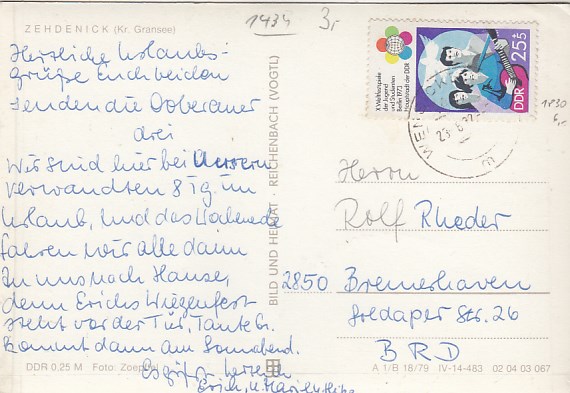 ZEHDENICK (Kr. Gransee)
1434
3,-
Herzliche Urlaubs-
grüße Euch beiden
senden die Doberaner
drei
Wir sind hier bei Unseren
verwandten 8 Tg. im
Urlaub, und das Wochenende
fahren wir alle dann
zu uns nach Hause,
denn Erichs Wiegenfest
steht vor der Tür, Tante
kommt dann am Sonnabend.
Es grüßen herzlich
Erich, u.
DDR 0,25 M Foto: Zoephel
BILD UND HEIMAT · REICHENBACH (VOGTL)
X. Weltfestspiele
der Jugend
und Studenten
Berlin 1973
Hauptstadt der DDR
DDR 25+5
1830
6,-
Herrn
Rolf Rheder
2850 Bremerhaven
Goldaper Str. 26
BRD
A 1/B 18/79 IV-14-483 02 04 03 067